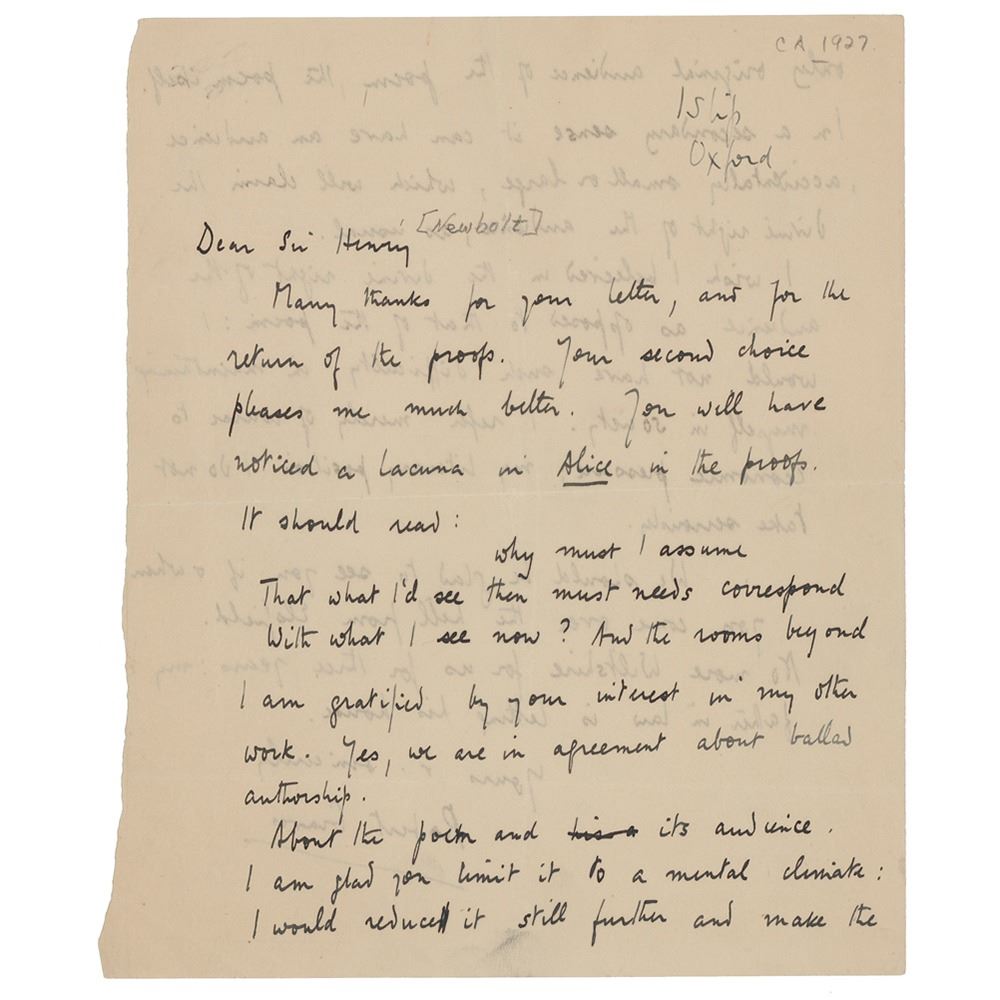 CA 1927.
Islip
Oxford
[Newbolt]
Dear Sir Henry
Many thanks for your letter, and for the
return of the proofs. Your second choice
pleases me much better. You will have
noticed a lacuna in Alice in the proofs.
It should read:
why must I assume
That what I'd see then must needs correspond
With what I see now? And the rooms beyond
I am gratified by your interest in my other
work. Yes, we are in agreement about ballad
authorship.
About the poem and its audience.
I am glad you limit it to a mental climate:
I would reduce it still further and make the